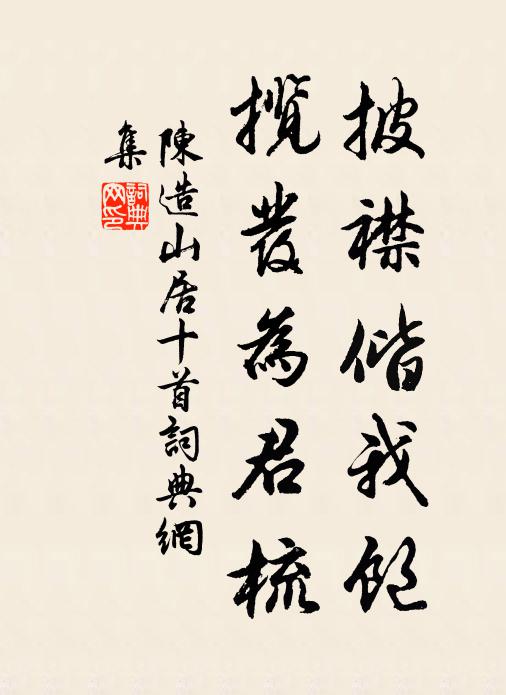 披襟偕我飽
攬發為君梳
陳造山居十首詞典網
集
詞典
网印